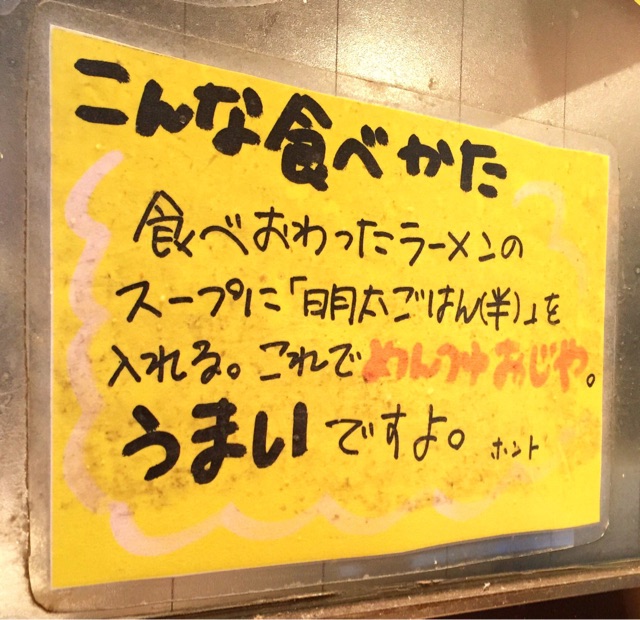 こんな食べかた
食べおわったラーメンの
スープに「明太ごはん(半)」を
入れる。これでめんつゆおじや。
うまいですよ。ホント